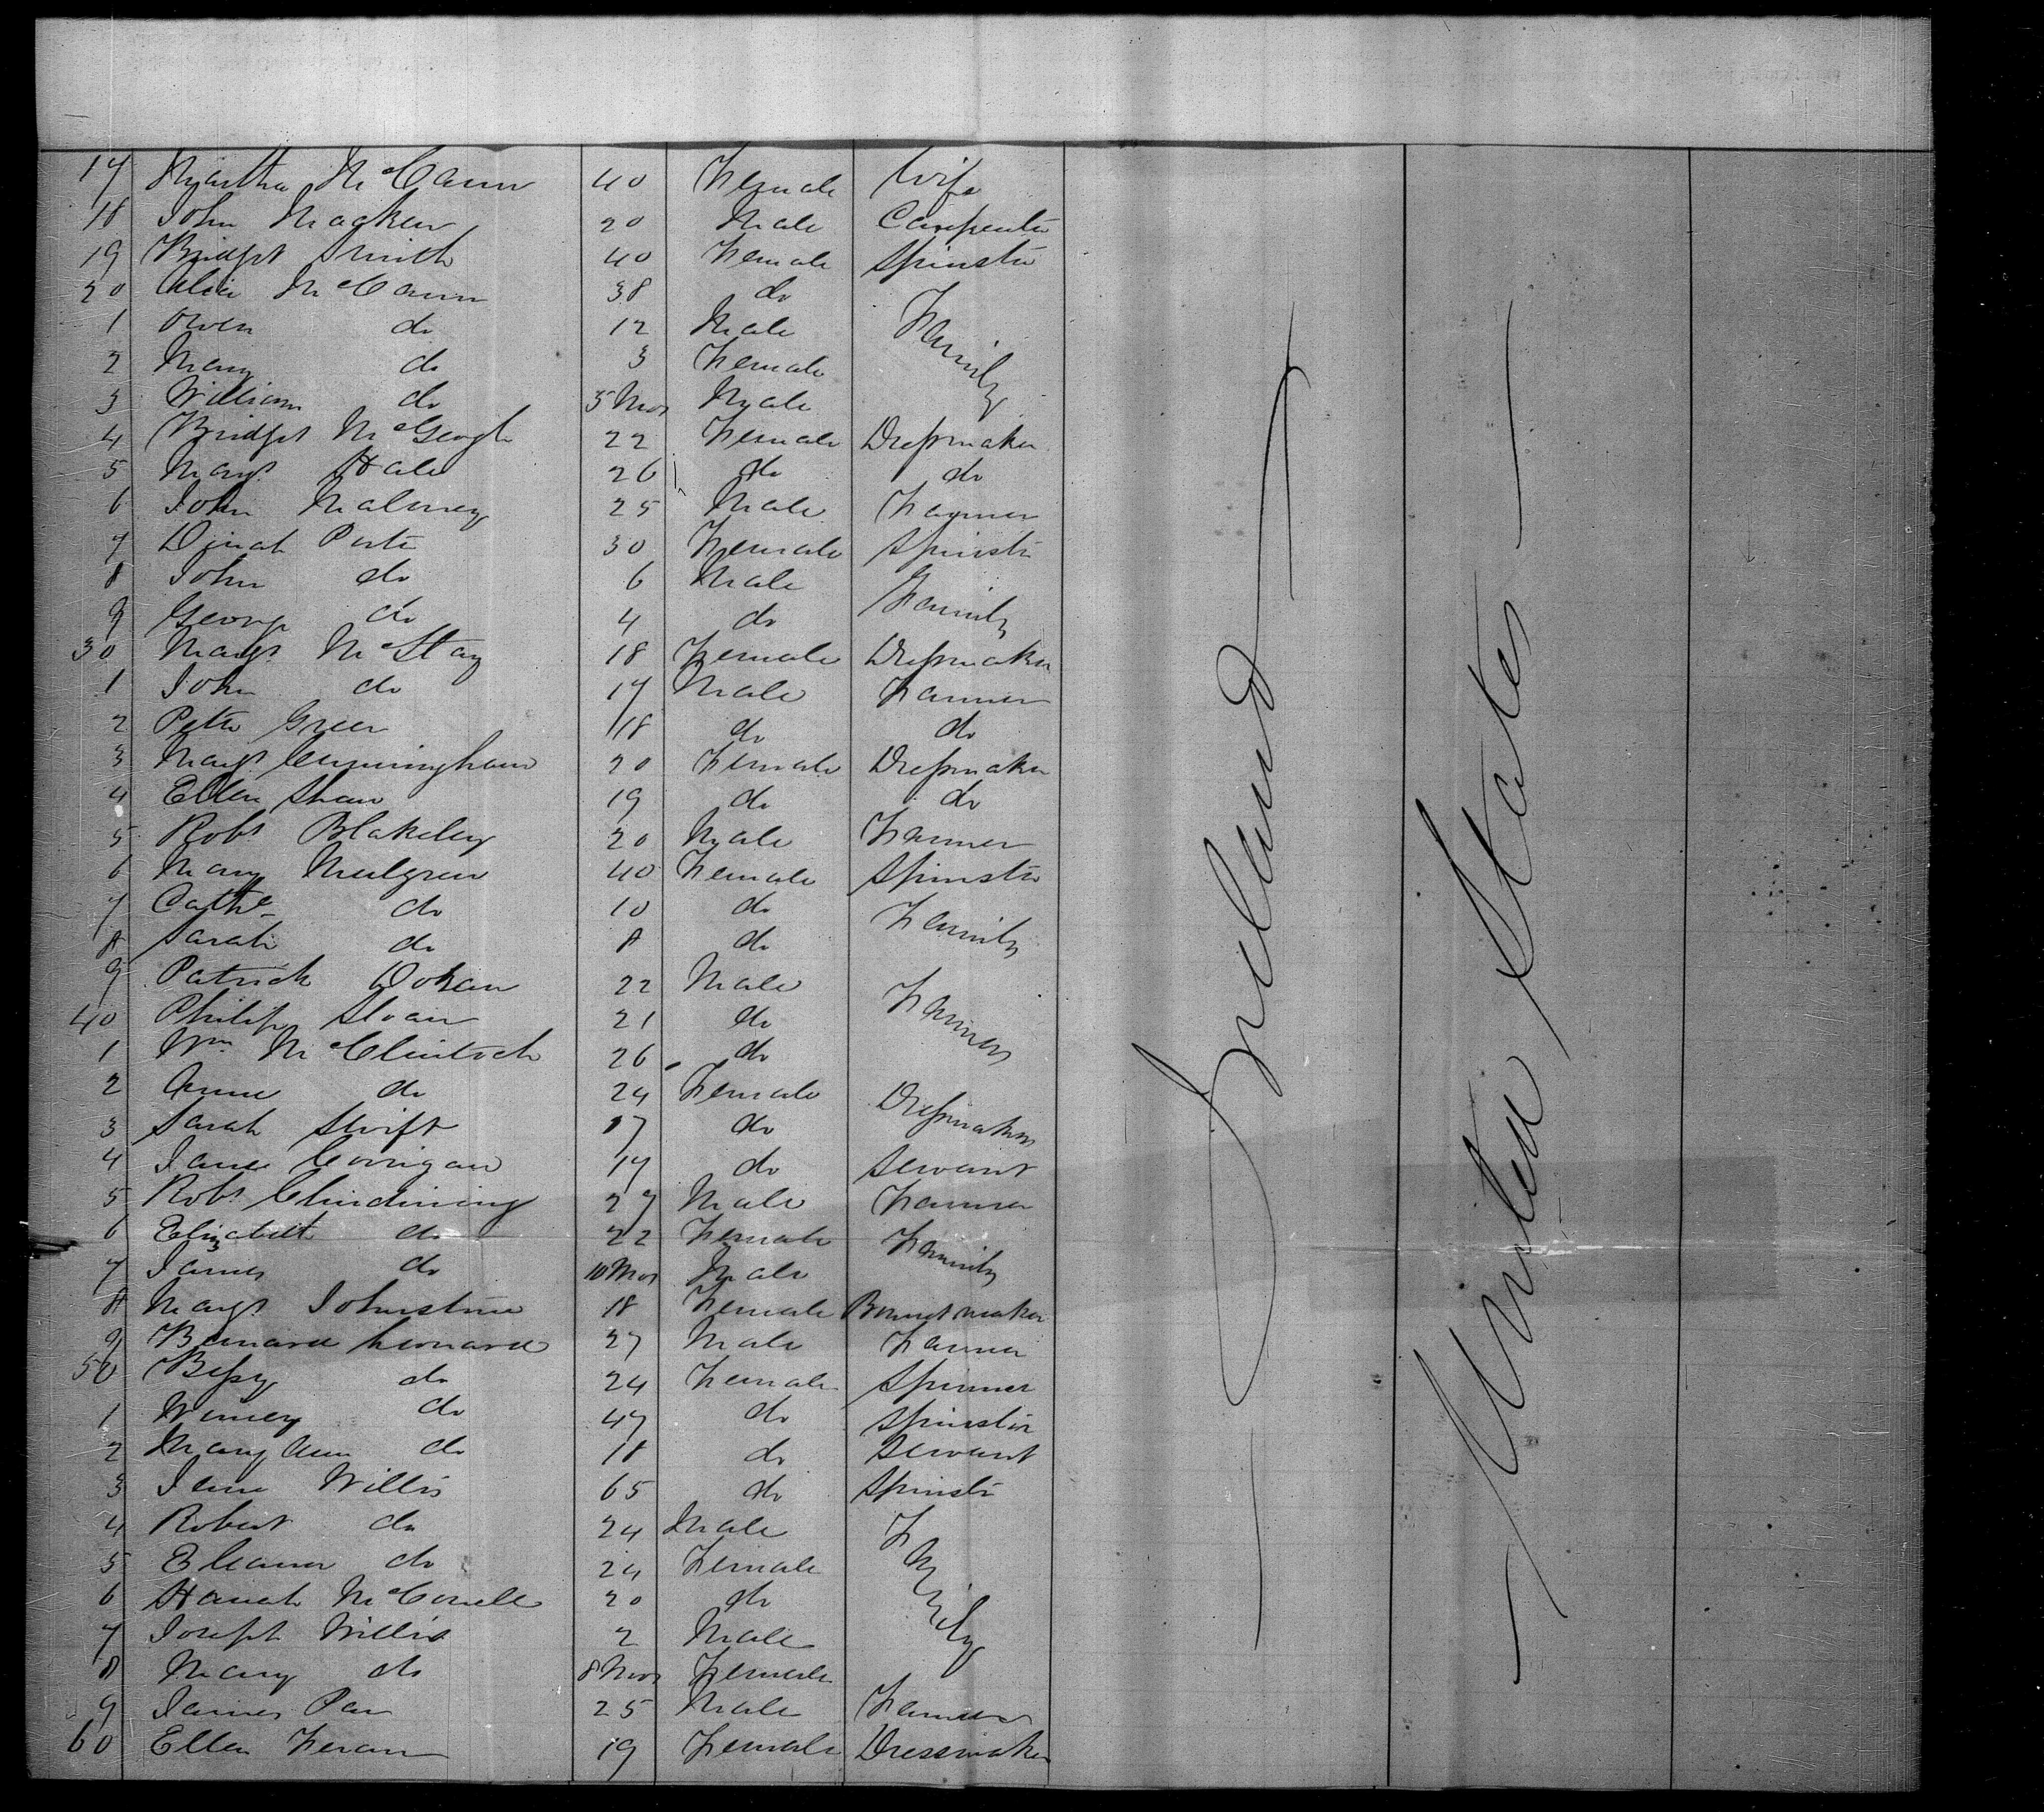 17 Martha McCann 40 Female Wife
18 John Macken 20 Male Carpenter
19 Bridget Smith 40 Female Spinster
20 Alice McCann 38 do
1 Owen do 12 Male Family
2 Mary do 3 Female
3 William do 3 Mos Male
4 Bridget McGeogh 22 Female Dressmaker
5 Margt Hale 26 do do
6 John 25 Male Farmer
7 Dinah Porter 30 Female Spinster
8 John do 6 Male Family
9 George do 4 do
30 Margt McStay 18 Female Dressmaker
1 John do 17 Male Farmer
2 Peter Greer 18 do do
3 Margt Cunningham 20 Female Dressmaker
4 Ellen Shaw 19 do do
5 Robt Blakeley 20 Male Farmer
6 Mary Mulgrew 40 Female Spinster
7 Cathe do 10 do Family
8 Sarah do 8 do
9 Patrick 22 Male Farmers
40 Philip Sloan 21 do
1 Wm McClintock 26 do
2 Anne do 24 Female Dressmakers
3 Sarah Swift 17 do
4 Jane Corrigan 17 do Servant
5 Robt Clindining 27 Male Farmer
6 Elizabeth do 22 Female Family
7 James do 10 Mos Male
8 Margt Johnstone 18 Female Bonnet maker
9 Bernard Leonard 27 Male Farmer
50 Bessy do 24 Female Spinner
1 Winney do 47 do Spinster
2 Mary Ann do 18 do Servant
3 Jane Willis 65 do Spinster
4 Robert do 24 Male Family
5 Eleanor do 24 Female
6 Hanah McConell 20 do
7 Joseph Willis 2 Male
8 Mary do 8 Mos Female
9 James Parr 25 Male Farmer
60 Ellen 19 Female Dressmaker
Ireland
United States